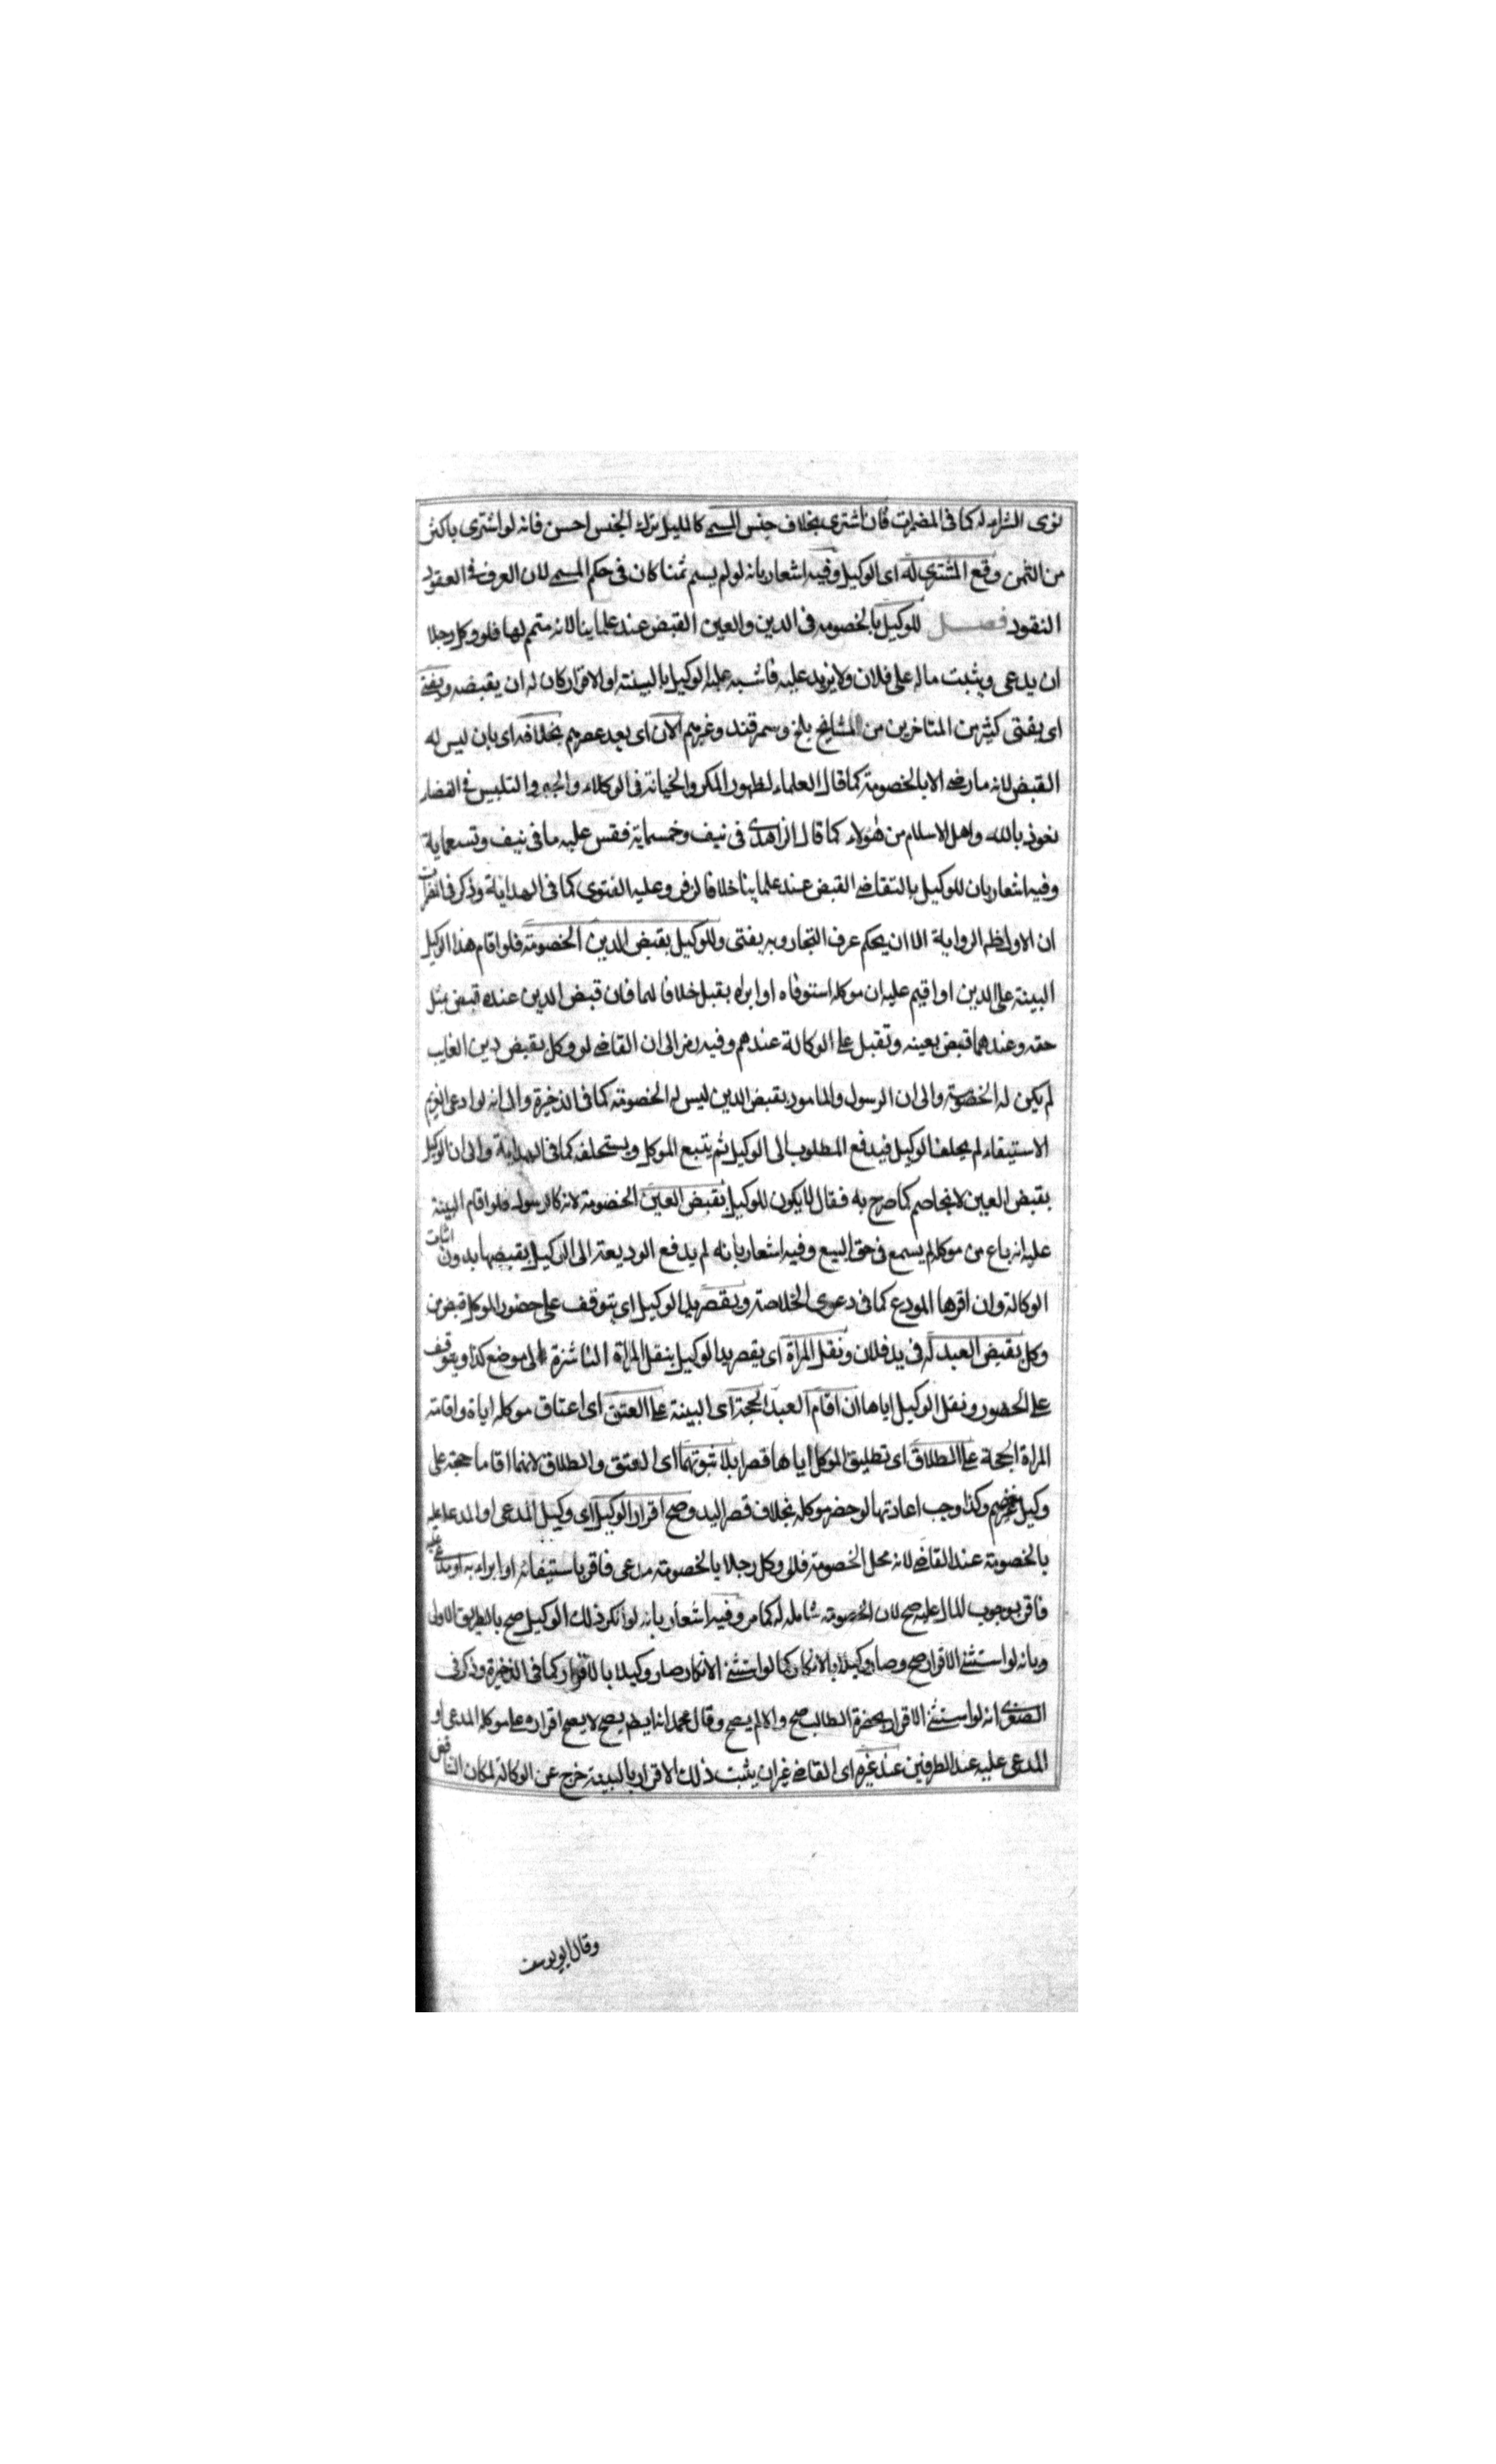 نوى الشراء له كما فى المضمرات فان اشترى بخلاف جنس المسمى كالمليل ترك الجنس احسن فانه لو اشترى باكثر
من الثمن وقع المشترى له اى الوكيل وفيه اشعار بانه لو لم يسم ثمنا كان فى حكم المسمى لان العرف فى العقود
النقود فصل للوكيل بالخصومة فى الدين والعين القبض عند علماينا لانه متمم لها فلو وكل رجلا
ان يدعى ويثبت ماله على فلان ولا يزيد عليه فاثبته عليه الوكيل بالبينة او الاقرار كان له ان يقبضه ويفتى
اى يفتى كثير من المتاخرين من المشايخ بلخ وسمرقند وغيرهم الآن اى بعد عصرهم بخلافه اى بان ليس له
القبض لانه ما رضى الا بالخصومة كما قال العلماء لظهور المكر والخيانة فى الوكلاء والتلبيس فى القضاء
نعوذ بالله واهل الاسلام من هؤلاء كما قال الزاهدى فى نيف وخمسماية فقس عليه ما فى نيف وتسعماية
وفيه اشعار بان للوكيل بالتقاضى القبض عند علماينا خلافا لزفر وعليه الفتوى كما فى الهداية وذكر فى المضمرات
ان الاول ظاهر الرواية الا ان يحكم عرف التجار وبه يفتى وللوكيل بقبض الدين الخصومة فلو اقام هذا الوكيل
البينة على الدين او اقيم عليه ان موكله استوفاه او ابراه يقبل خلافا لهما فان قبض الدين عنده قبض مثل
حقه وعندهما قبض بعينه وتقبل على الوكالة عندهم وفيه رمز الى ان القاضى لو وكل بقبض دين الغايب
لم يكن له الخصومة والى ان الرسول والمامور بقبض الدين ليس له الخصومة كما فى الذخيرة والى انه لو ادعى الغريم
الاستيفاء لم يحلف الوكيل فيدفع المطلوب الى الوكيل ثم يتبع الموكل ويستحلفه كما فى الهداية والى ان الوكيل
بقبض العين لا يخاصم كما صرح به فقال لا يكون للوكيل بقبض العين الخصومة لانه كالرسول فلو اقام البينة
عليه انه باع من موكله لم يسمع فى حق البيع وفيه اشعار بانه لم يدفع الوديعة الى الوكيل بقبضها بدون اثبات
الوكالة وان اقرها المودع كما فى دعوى الخلاصة ويقصر يد الوكيل اى يتوقف على حضور الموكل قبض من
وكل بقبض العبد له فى يد فلان ونقل المراة اى يقصر يد الوكيل بنقل المراة الناشزة الى موضع كذا ويتوقف
على الحضور ونقل الوكيل اياها ان اقام العبد الحجة اى البينة على العتق اى اعتاق موكله اياه واقامة
المراة الحجة على الطلاق اى تطليق الموكل اياها قصرا بلا ثبوتهما اى العتق والطلاق لانهما اقاما حجة على
وكيل غير خصم وكذا وجب اعادتها لو حضر موكله بخلاف قصر اليد وصح اقرار الوكيل اى وكيل المدعى او المدعا عليه
بالخصومة عند القاضى لانه محل الخصومة فلو وكل رجلا بالخصومة مدعى فاقر باستيفائه او ابراء به او مدعى عليه
فاقر بوجوب المال عليه صح لان الخصومة شاملة له كما مر وفيه اشعار بانه لو انكر ذلك الوكيل صح بالطريق الاولى
وبانه لو استثنى الاقرار صح وصار وكيلا بالانكار كما لو استثنى الانكار صار وكيلا بالاقرار كما فى الذخيرة وذكر فى
الصغرى انه لو استثنى الاقرار بحضرة الطالب صح والا لم يصح وقال محمد انه يصح لا يصح اقراره على موكله المدعى او
المدعى عليه عند الطرفين عند غيره اى القاضى غير ان يثبت ذلك الاقرار بالبينة خرج عن الوكالة لمكان التناقض
وقال ابو يوسف